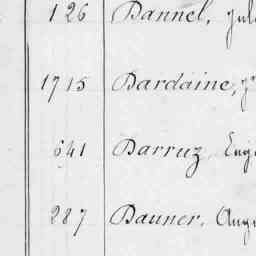 126 Bannel, Jul
1715 Bardaine, J
641 Barruz, Eug
287 Bauner, Aug